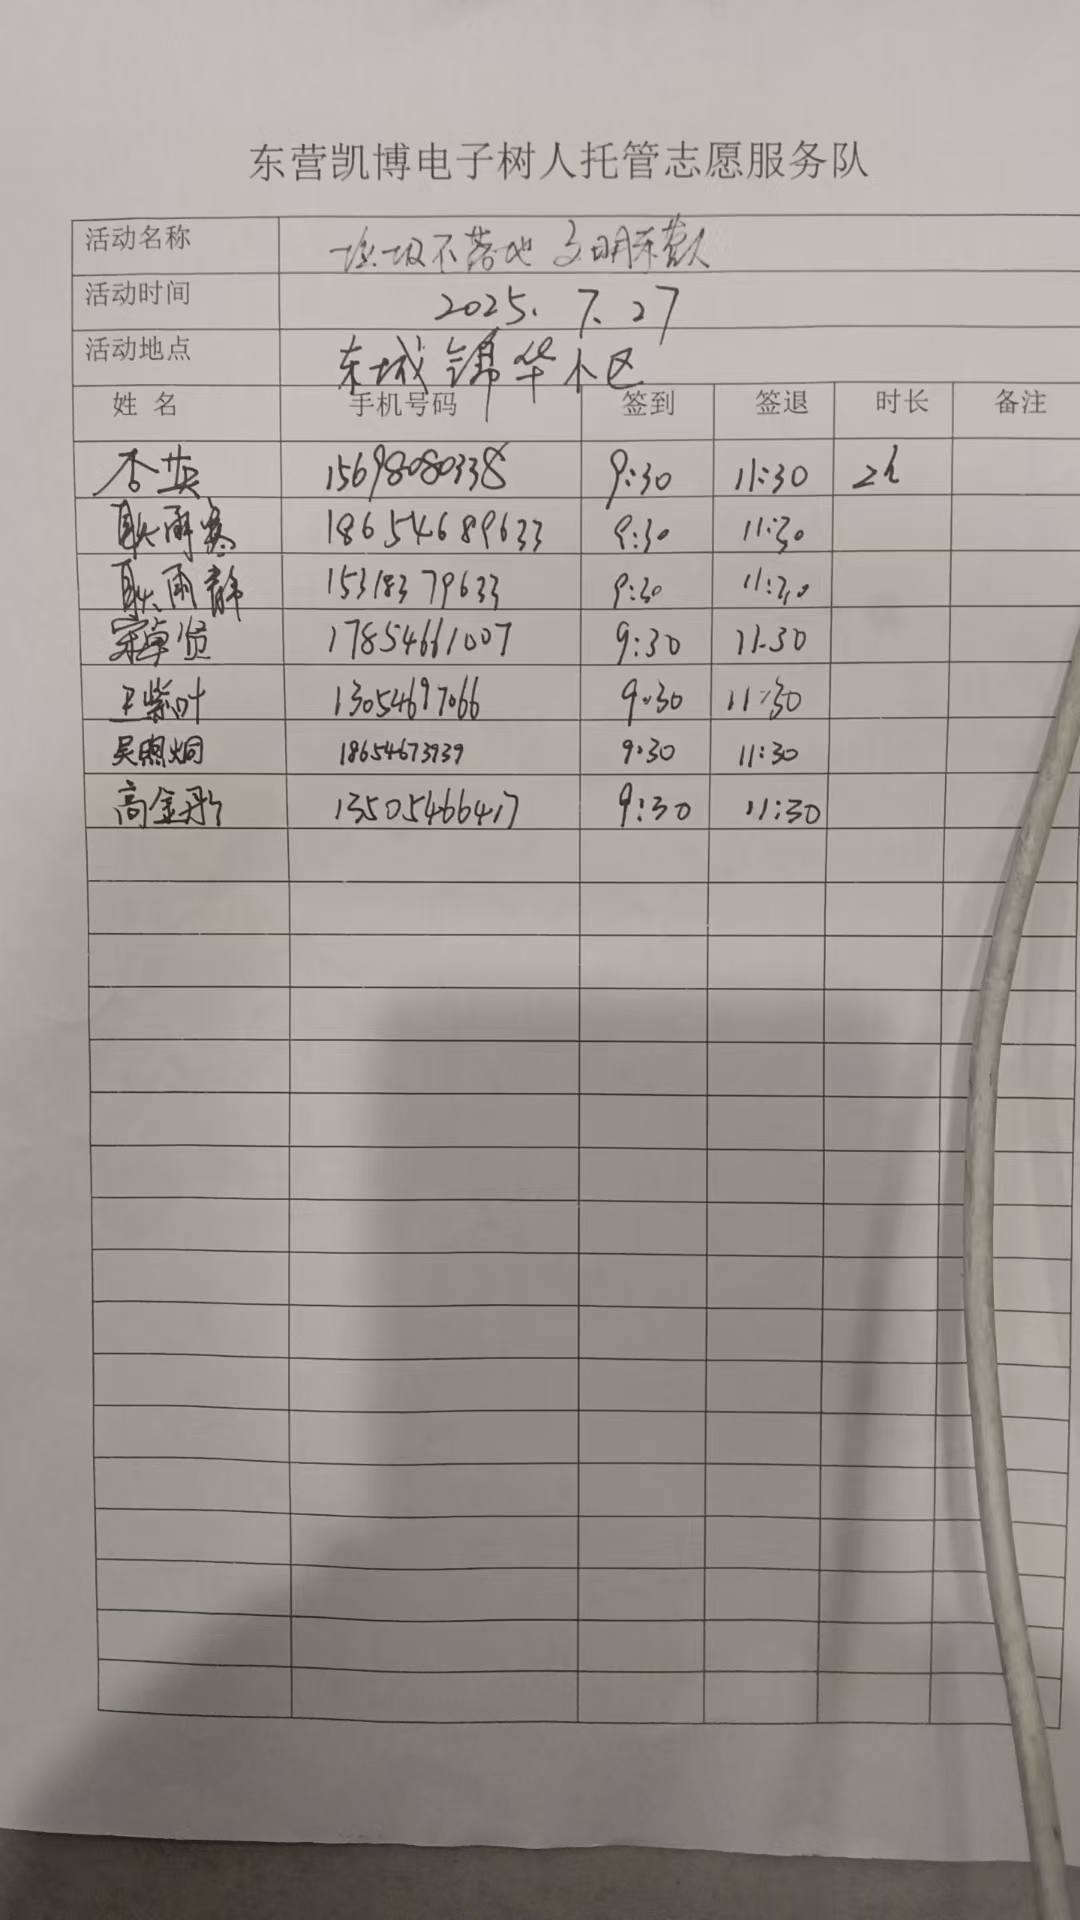 东营凯博电子树人托管志愿服务队
活动名称 垃圾不落地 文明东营人
活动时间 2025.7.27
活动地点 东城锦华小区
姓名 手机号码 签到 签退 时长 备注
英 15698080338 9:30 11:30 2h
耿雨 18654689633 9:30 11:30
耿雨静 15318379633 9:30 11:30
宋卓贤 17854661007 9:30 11:30
王紫叶 13054697066 9:30 11:30
吴煦炯 18654673939 9:30 11:30
高金彤 13505466417 9:30 11:30